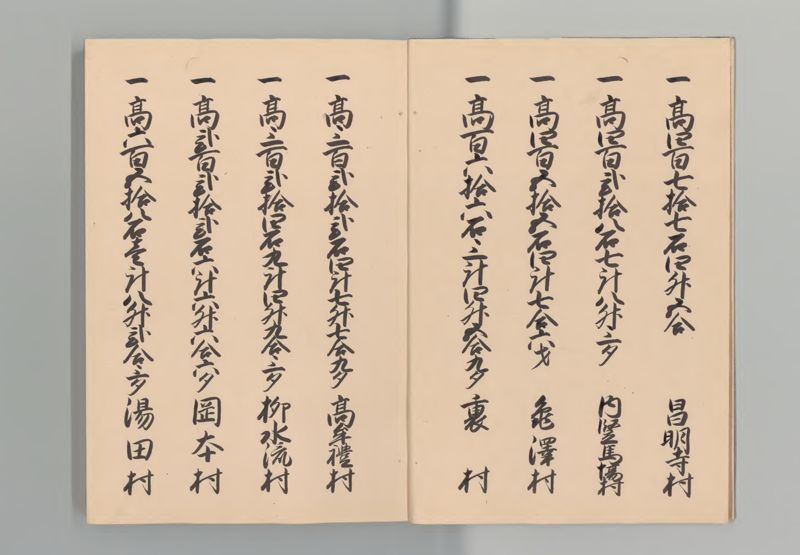 一高四百七拾七石四升五合 昌明寺村
一高四百弐拾八石七斗八升三夕 内竪馬場村
一高四百五拾五石四斗七合六才 亀澤村
一高百六拾六石三斗四升五合九夕 裏村
一高三百弐拾弐石四斗七升七合九夕 高牟禮村
一高三百弐拾四石九斗四升九合三夕 柳水流村
一高弐百弐拾弐石六斗六升六合六夕 岡本村
一高六百五拾八石壱斗八升弐合三夕 湯田村